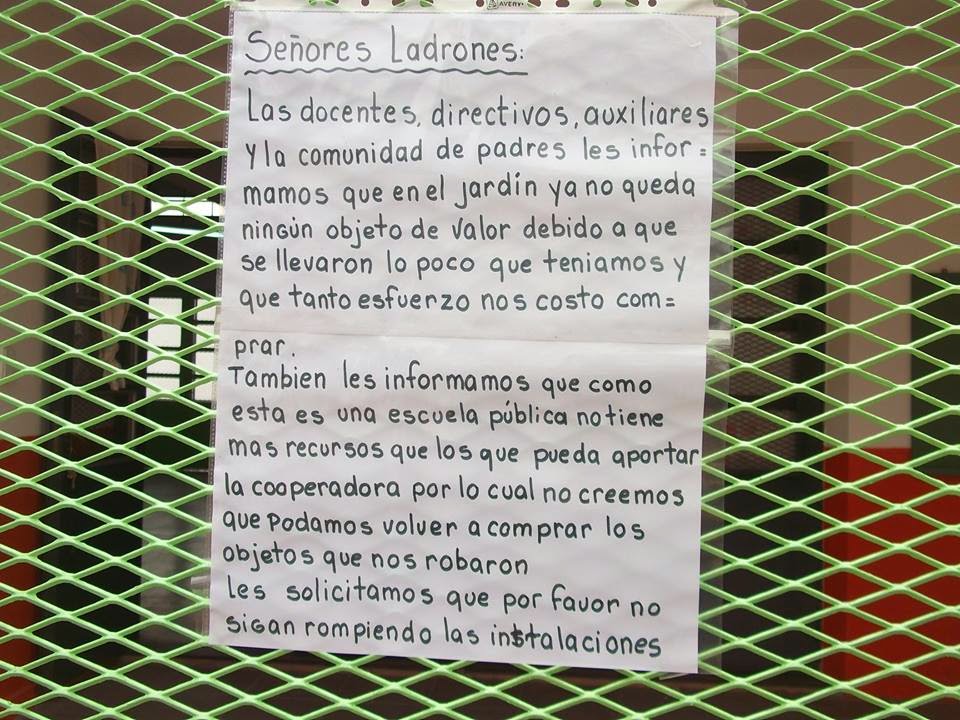 AVERY
Señores Ladrones:
Las docentes, directivos, auxiliares
y la comunidad de padres les infor=
mamos que en el jardín ya no queda
ningún objeto de valor debido a que
se llevaron lo poco que teniamos y
que tanto esfuerzo nos costo com=
prar.
Tambien les informamos que como
esta es una escuela pública no tiene
mas recursos que los que pueda aportar
la cooperadora por lo cual no creemos
que podamos volver a comprar los
objetos que nos robaron
les solicitamos que por favor no
sigan rompiendo las instalaciones